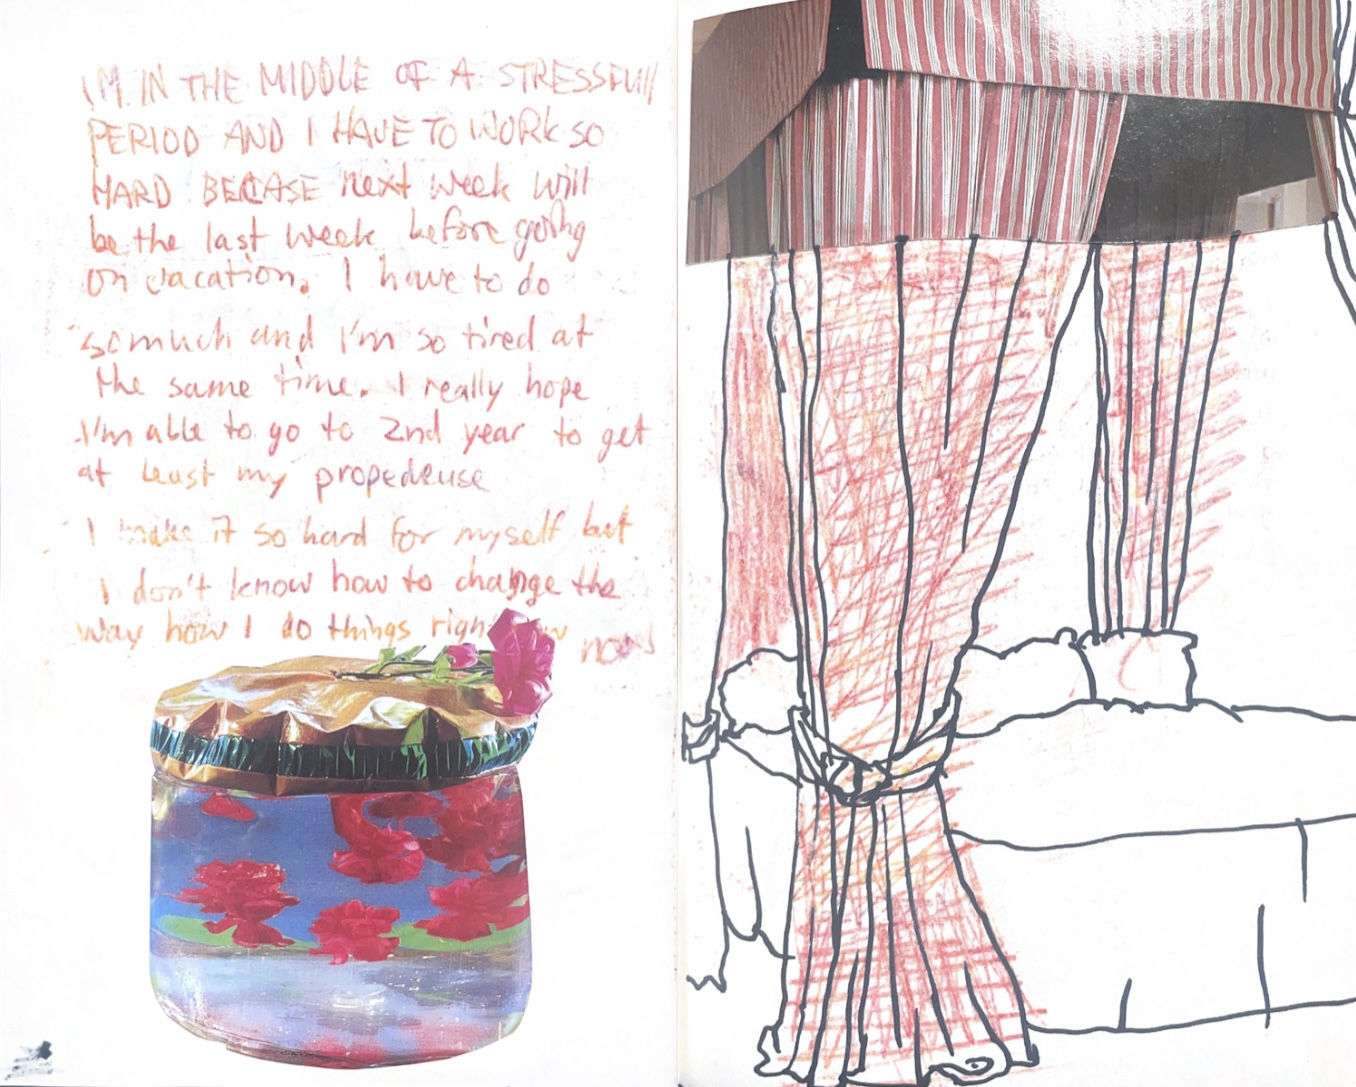 I'M IN THE MIDDLE OF A STRESSFUll
PERIOD AND I HAVE TO WORK SO
HARD BECASE next week will
be the last week before going
on vacation. I have to do
so much and I'm so tired at
the same time. I really hope
I'm able to go to 2nd year to get
at least my propedeuse
I make it so hard for myself but
I don't know how to change the
way how I do things right now now